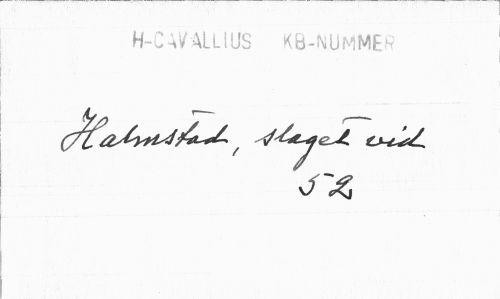 H-CAVALLIUS KB-NUMMER
Halmstad, slaget vid
52